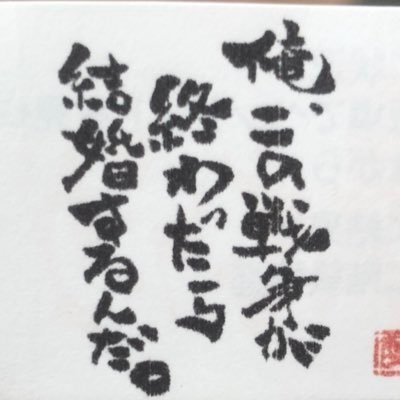 俺、この戦争が
終わったら
結婚するんだ。